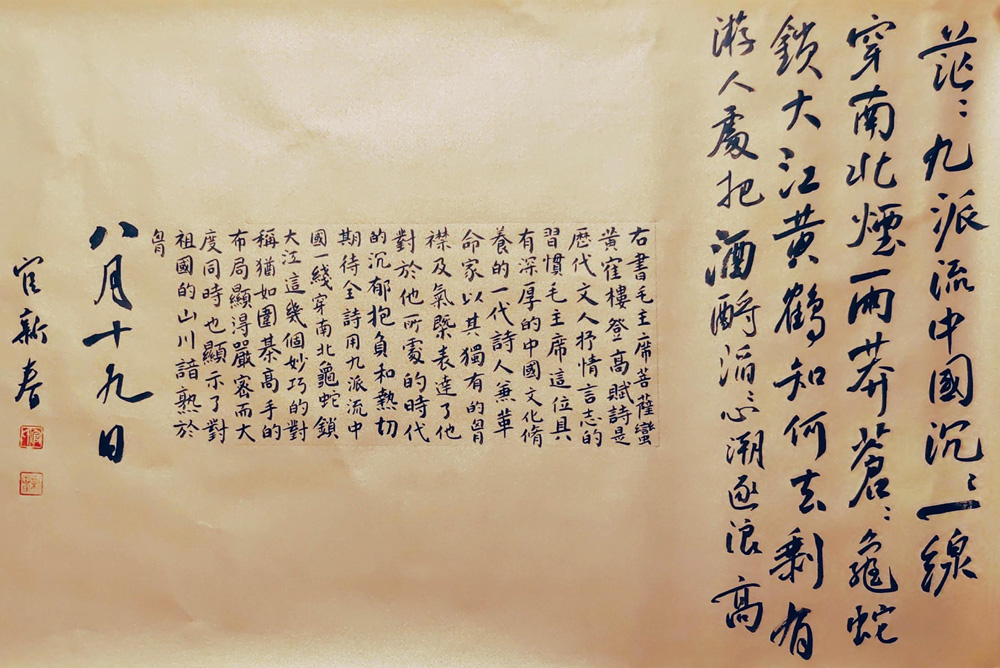 茫：九派流中國沉：一線
穿南北煙雨莽蒼：龜蛇
鎖大江黄鶴知何去剩有
游人處把酒酹滔：心潮逐浪高
右書毛主席菩薩蠻
黄寉樓登高賦詩是
歷代文人抒情言志的
習慣毛主席這位具
有深厚的中國文化脩
養的一代詩人兼革
命家以其獨有的胷
襟及氣槩表達了他
對於他所處的時代
的沉郁抱負和熱切
期待全詩用九派流中
國一綫穿南北龜蛇鎖
大江這幾個妙巧的對
稱猶如圍棊高手的
布局顯得嚴密而大
度同時也顯示了對
祖國的山川諳熟於
胷
八月十九日
官新春